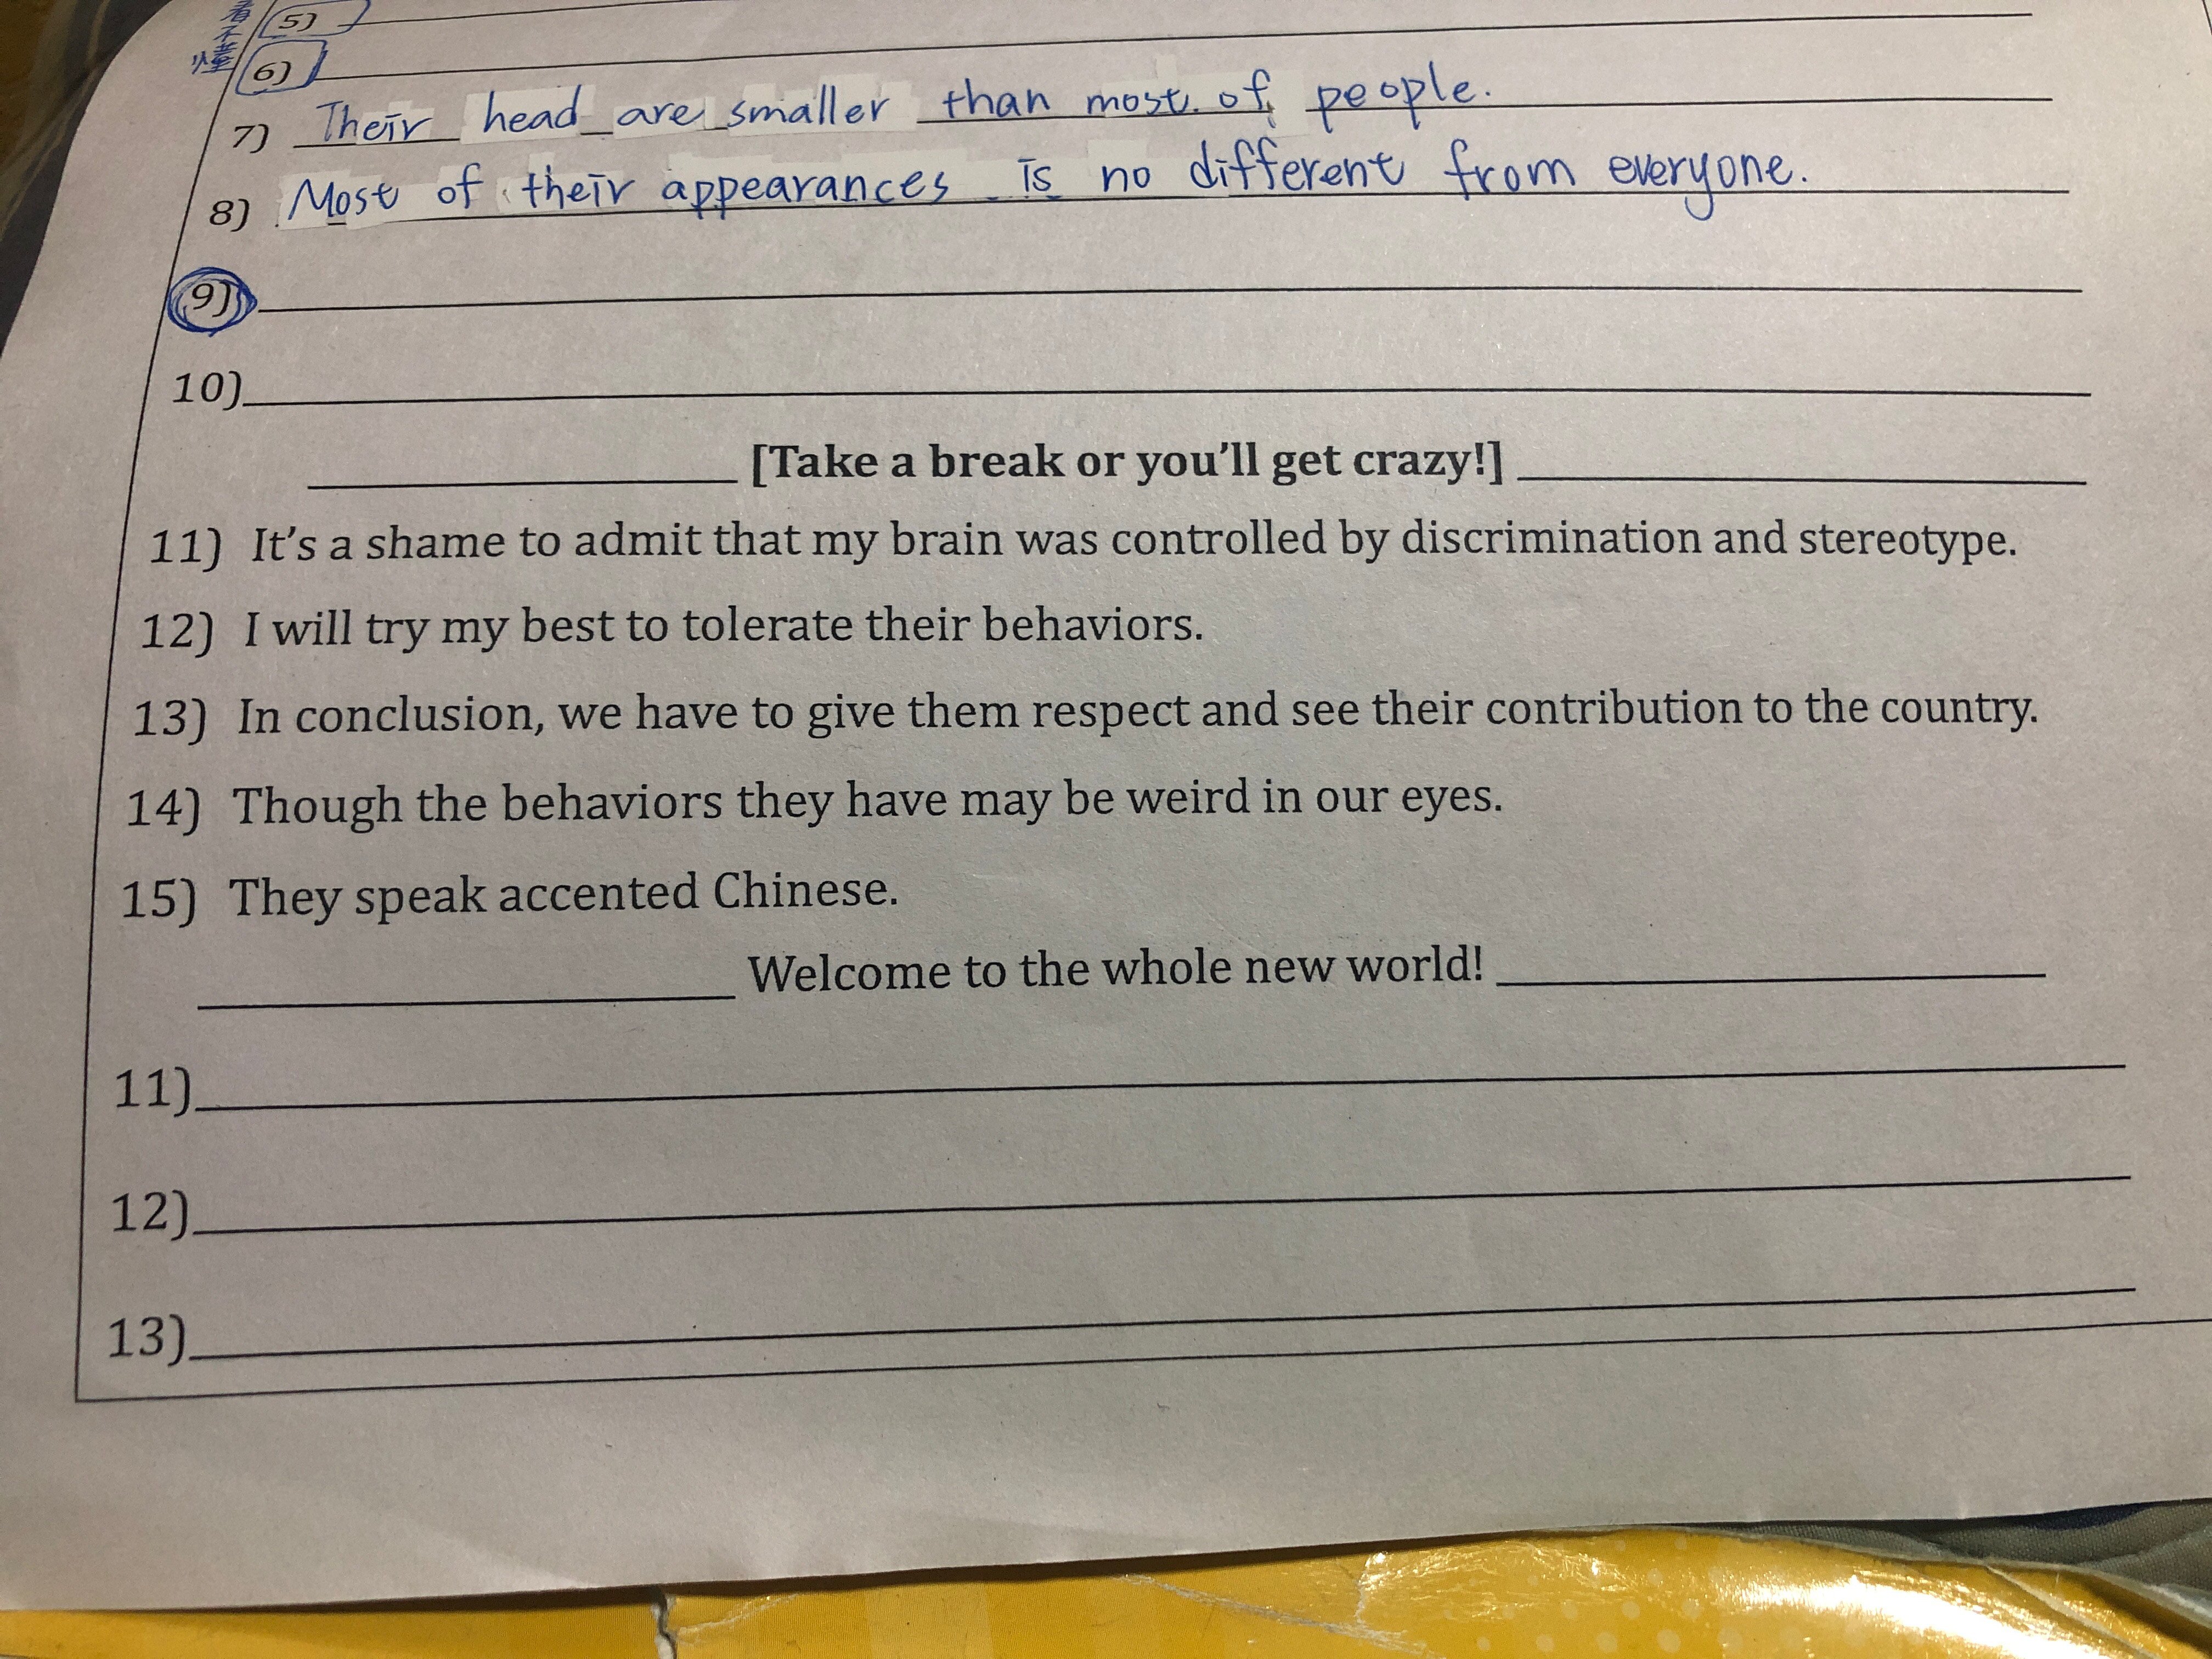 看不懂
5)
6)
7) Their head are smaller than most of people.
8) Most of their appearances is no different from everyone.
9)
10)
[Take a break or you'll get crazy!]
11) It's a shame to admit that my brain was controlled by discrimination and stereotype.
12) I will try my best to tolerate their behaviors.
13) In conclusion, we have to give them respect and see their contribution to the country.
14) Though the behaviors they have may be weird in our eyes.
15) They speak accented Chinese.
Welcome to the whole new world!
11)
12)
13)